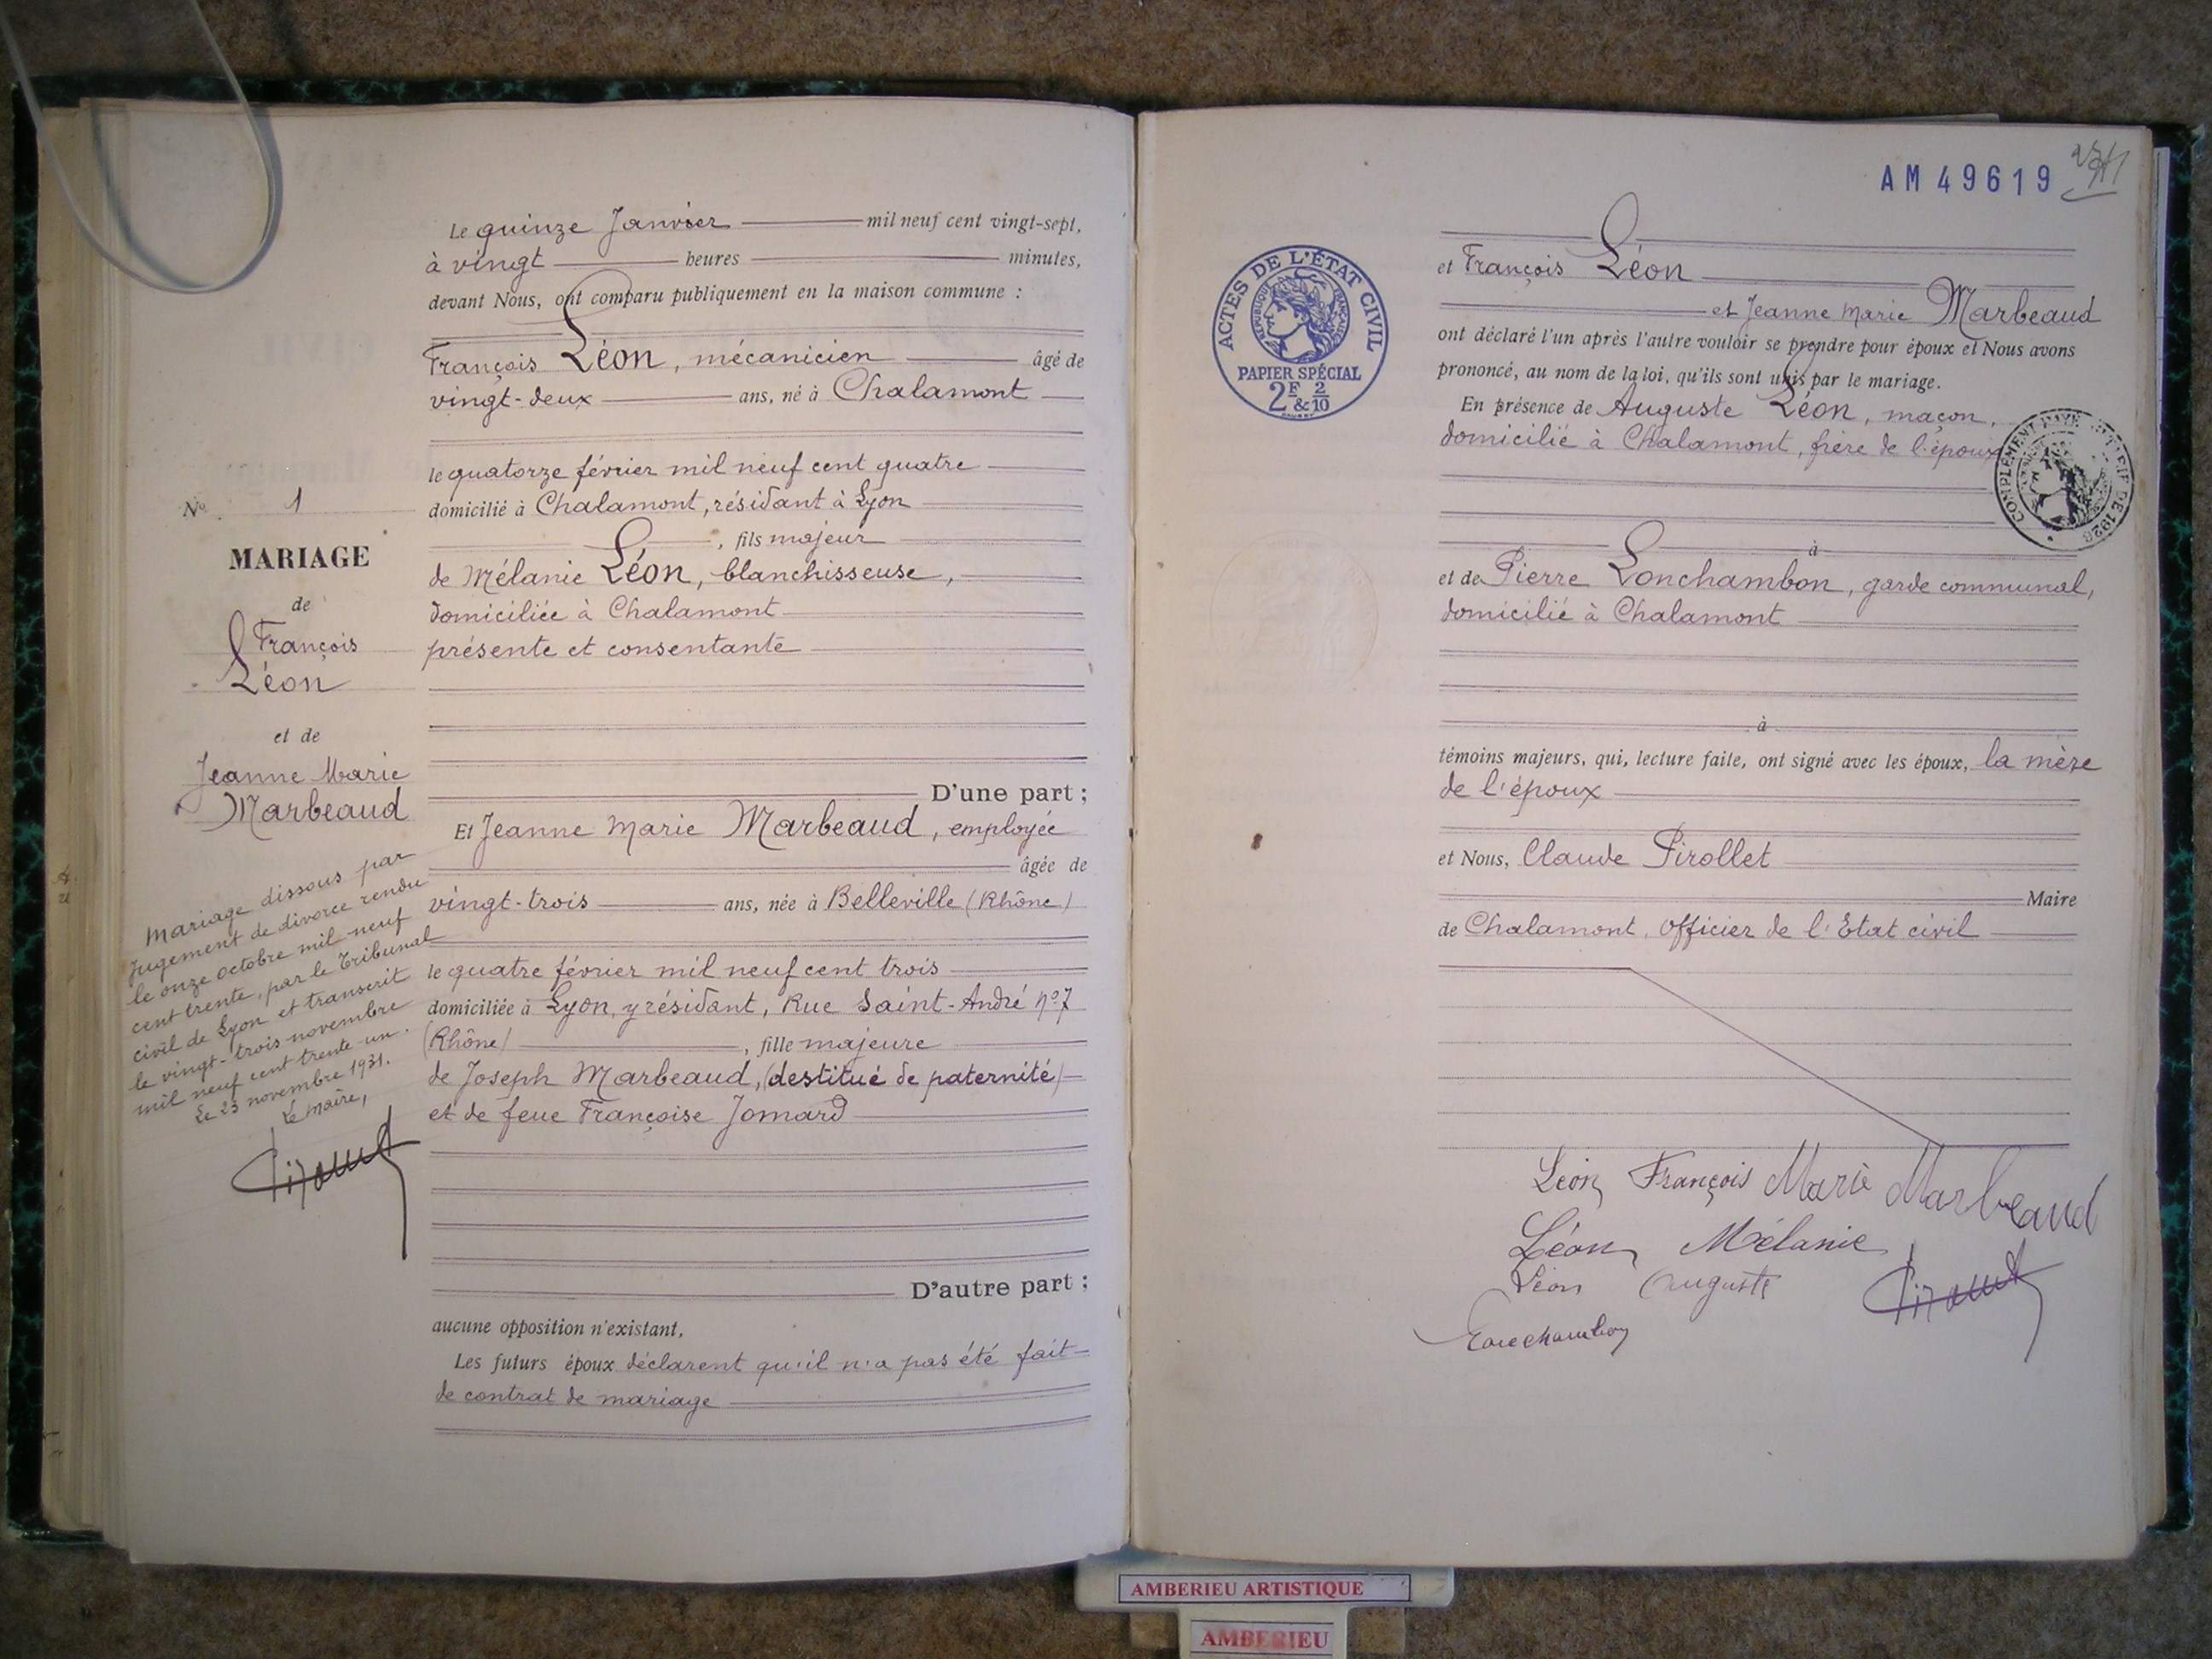 Le quinze Janvier mil neuf cent vingt-sept,
à vingt heures minutes,
devant Nous, ont comparu publiquement en la maison commune :
François Léon, mécanicien âgé de
vingt-deux ans, né à Chalamont
le quatorze février mil neuf cent quatre
domicilié à Chalamont, résidant à Lyon
, fils majeur
de Mélanie Léon, blanchisseuse,
domiciliée à Chalamont
présente et consentante
D'une part ;
Et Jeanne Marie Marbeaud, employée
âgée de
vingt-trois ans, née à Belleville (Rhône)
le quatre février mil neuf cent trois
domiciliée à Lyon, y résidant, Rue Saint-André nº 7
(Rhône) , fille majeure
de Joseph Marbeaud, (destitué de paternité)
et de feue Françoise Jomard
D'autre part ;
aucune opposition n'existant,
Les futurs époux déclarent qu'il n'a pas été fait
de contrat de mariage
No 1
MARIAGE
de
François
Léon
et de
Jeanne Marie
Marbeaud
Mariage dissous par
Jugement de divorce rendu
le onze octobre mil neuf
cent trente, par le Tribunal
civil de Lyon et transcrit
le vingt-trois novembre
mil neuf cent trente-un.
Le 23 novembre 1931.
Le Maire,
AM 49619
ACTES DE L'ÉTAT CIVIL
RÉPUBLIQUE FRANÇAISE
PAPIER SPÉCIAL
2F & 2/10
et François Léon
et Jeanne Marie Marbeaud
ont déclaré l'un après l'autre vouloir se prendre pour époux et Nous avons
prononcé, au nom de la loi, qu'ils sont unis par le mariage.
En présence de Auguste Léon, maçon,
domicilié à Chalamont, frère de l'époux
à
et de Pierre Lonchambon, garde communal,
domicilié à Chalamont
à
témoins majeurs, qui, lecture faite, ont signé avec les époux, la mère
de l'époux
et Nous, Claude Pirollet
Maire
de Chalamont, Officier de l'Etat civil
Léon François Marie Marbeaud
Léon Mélanie
Léon Auguste
Lonchambon
AMBERIEU ARTISTIQUE
AMBERIEU